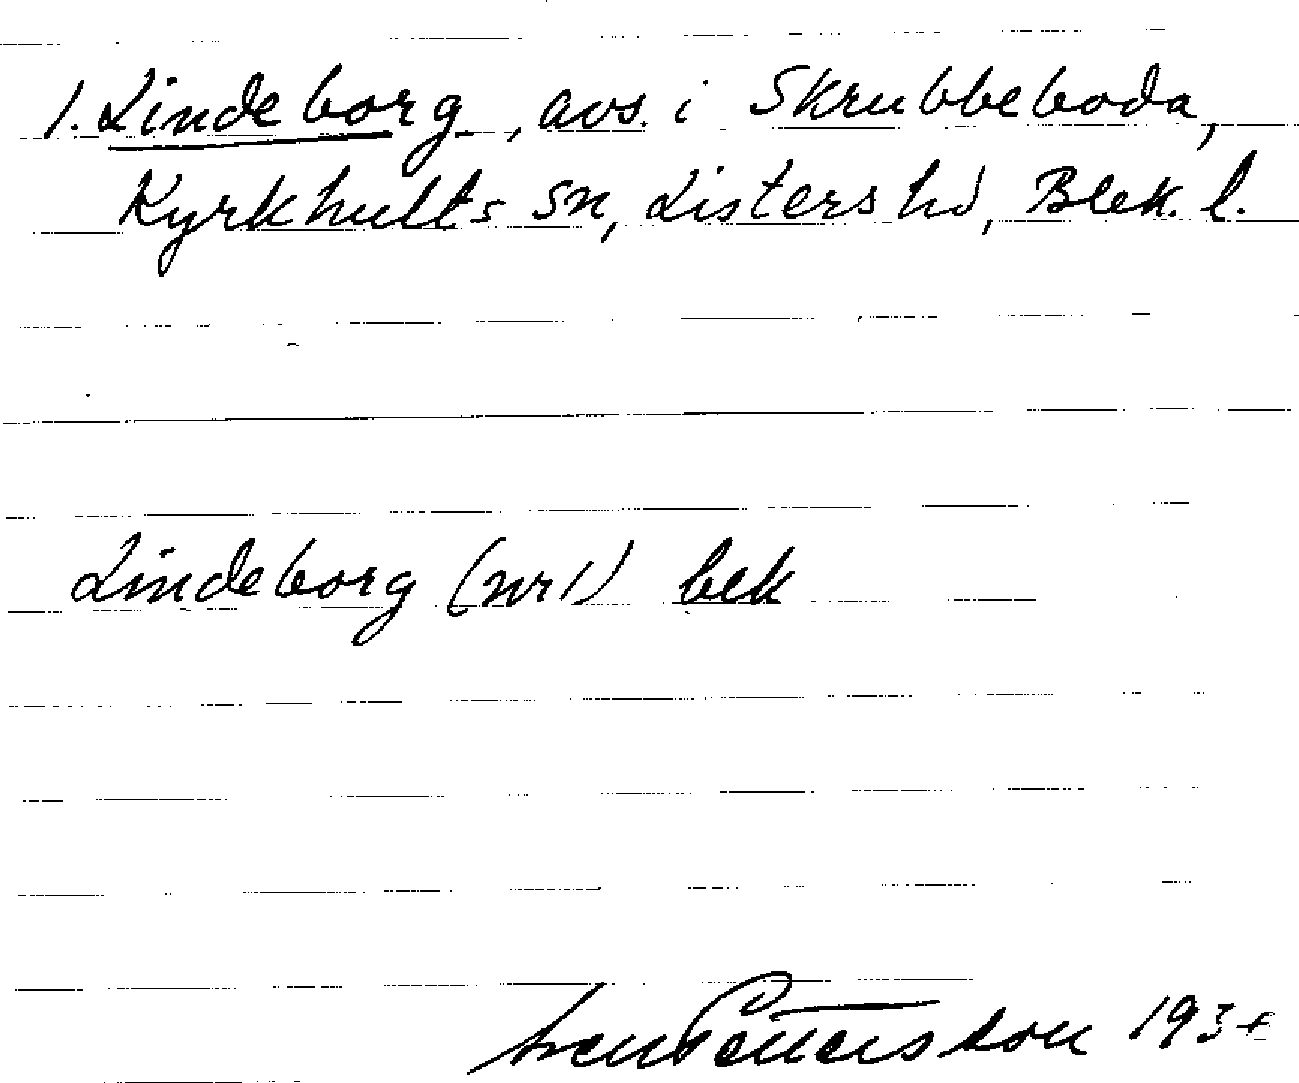 1. Lindeborg, avs. i Skrubbeboda,
Kyrkhults sn, Listers hd, Blek. l.
Lindeborg (nr 1) bek
Sven Pettersson 193